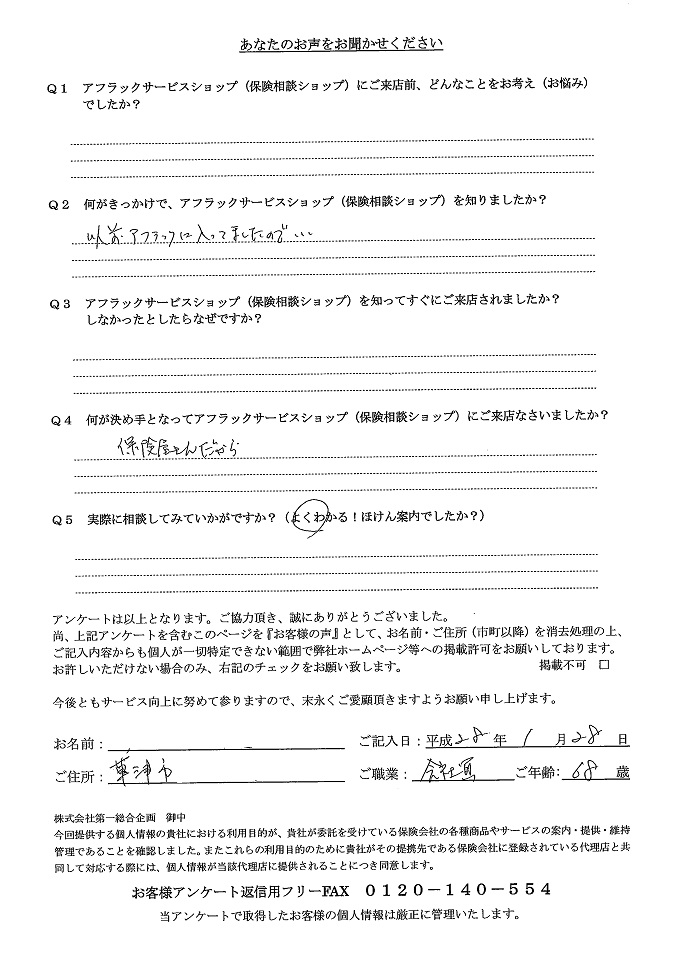 あなたのお声をお聞かせください
Q1 アフラックサービスショップ（保険相談ショップ）にご来店前、どんなことをお考え（お悩み）
でしたか？
Q2 何がきっかけで、アフラックサービスショップ（保険相談ショップ）を知りましたか？
以前、アフラックに入ってましたので...
Q3 アフラックサービスショップ（保険相談ショップ）を知ってすぐにご来店されましたか？
しなかったとしたらなぜですか？
Q4 何が決め手となってアフラックサービスショップ（保険相談ショップ）にご来店なさいましたか？
保険屋さんだから
Q5 実際に相談してみていかがですか？（よくわかる！ほけん案内でしたか？）
アンケートは以上となります。ご協力頂き、誠にありがとうございました。
尚、上記アンケートを含むこのページを『お客様の声』として、お名前・ご住所（市町以降）を消去処理の上、
ご記入内容からも個人が一切特定できない範囲で弊社ホームページ等への掲載許可をお願いしております。
お許しいただけない場合のみ、右記のチェックをお願い致します。 掲載不可 □
今後ともサービス向上に努めて参りますので、末永くご愛顧頂きますようお願い申し上げます。
お名前： ご記入日：平成28年 1月28日
ご住所：草津市 ご職業：会社員 ご年齢：68歳
株式会社第一総合企画 御中
今回提供する個人情報の貴社における利用目的が、貴社が委託を受けている保険会社の各種商品やサービスの案内・提供・維持
管理であることを確認しました。またこれらの利用目的のために貴社がその提携先である保険会社に登録されている代理店と共
同して対応する際には、個人情報が当該代理店に提供されることにつき同意します。
お客様アンケート返信用フリーFAX 0120－140－554
当アンケートで取得したお客様の個人情報は厳正に管理いたします。